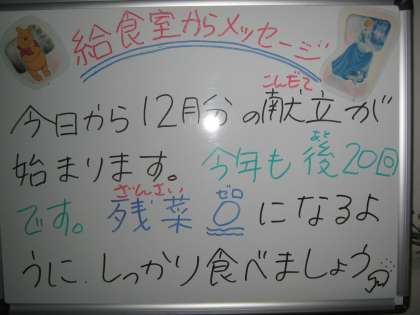 給食室からメッセージ
こんだて
今日から12月分の献立が
あと
始まります。今年も後20回
ざんさい ゼロ
です。残菜0になるよ
うに、しっかり食べましょう